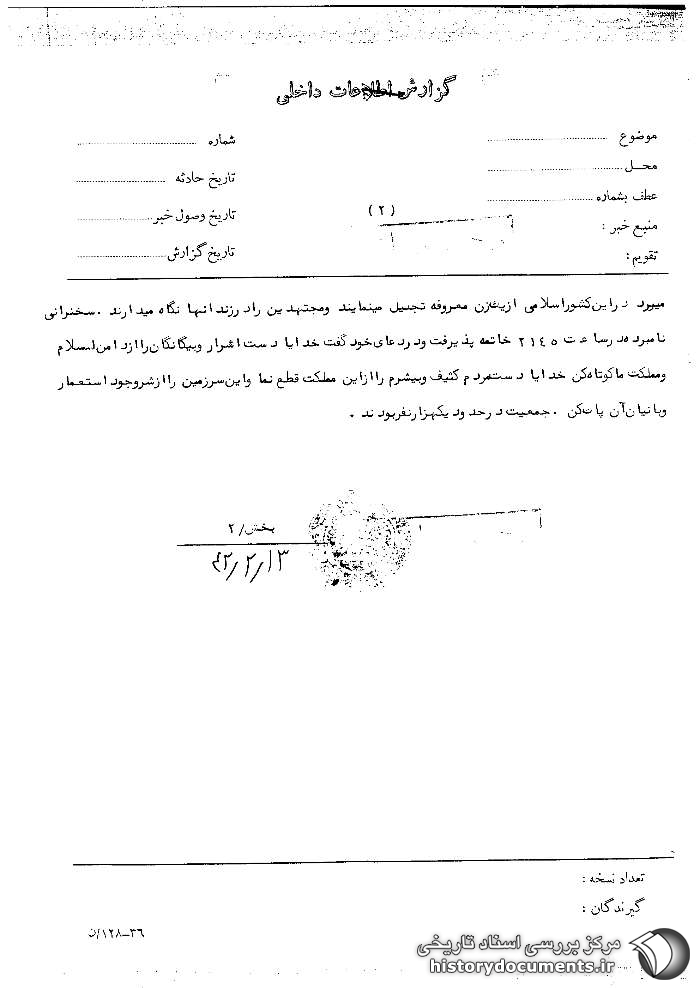 گزارش اطلاعات داخلی
موضوع
شماره
محل
تاریخ حادثه
عطف بشماره
تاریخ وصول خبر
(۲)
منبع خبر :
تقویم :
تاریخ گزارش
میبرد در این کشور اسلامی از یک زن معروفه تجلیل مینمایند و مجتهدین را در زندانها نگاه میدارند . سخنرانی
نامبرده در ساعت ۲۱۴۵ خاتمه پذیرفت و در دعای خود گفت خدایا دست اشرار و بیگانگان را از دامن اسلام
و مملکت ما کوتاه کن خدایا دست مردم کثیف و بیشرم را از این مملکت قطع نما و این سرزمین را از شر وجود استعمار
و بانیان آن پاک کن . جمعیت در حدود یکهزار نفر بودند .
بخش / ۲
۴۲/۲/۱۳
تعداد نسخه :
گیرندگان :
۳۶-۱۲۸/ن
مرکز بررسی اسناد تاریخی
historydocuments.ir